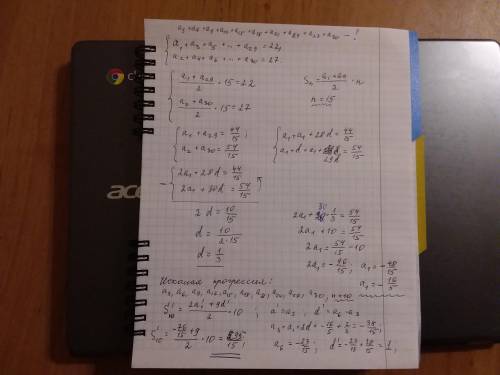 a₃ + a₆ + a₉ + a₁₂ + a₁₅ + a₁₈ + a₂₁ + a₂₄ + a₂₇ + a₃₀ - ?
a₁ + a₃ + a₅ + ... + a₂₉ = 22,
a₂ + a₄ + a₆ + ... + a₃₀ = 27.
(a₁ + a₂₉)/2 · 15 = 22
Sₙ = (a₁ + aₙ)/2 · n
(a₂ + a₃₀)/2 · 15 = 27
n = 15
a₁ + a₂₉ = 44/15;
a₂ + a₃₀ = 54/15
a₁ + a₁ + 28d = 44/15
a₁ + d + a₁ + 29d = 54/15
2a₁ + 28d = 44/15
2a₁ + 30d = 54/15
2d = 10/15
d = 10/(2·15)
d = 1/3
2a₁ + 30 · 1/3 = 54/15
2a₁ + 10 = 54/15
2a₁ = 54/15 - 10
2a₁ = - 96/15; a₁ = - 48/15
a₁ = - 16/5
Искомая прогрессия:
a₃, a₆, a₉, a₁₂, a₁₅, a₁₈, a₂₁, a₂₄, a₂₇, a₃₀, n = 10
S'₁₀ = (2a'₁ + 9d')/2 · 10; a' = a₃, d' = a₆ - a₃
a₃ = a₁ + 2d = - 16/5 + 2/3 = - 38/15;
a₆ = - 23/15; d' = - 23/15 + 38/15 = 1;
acer